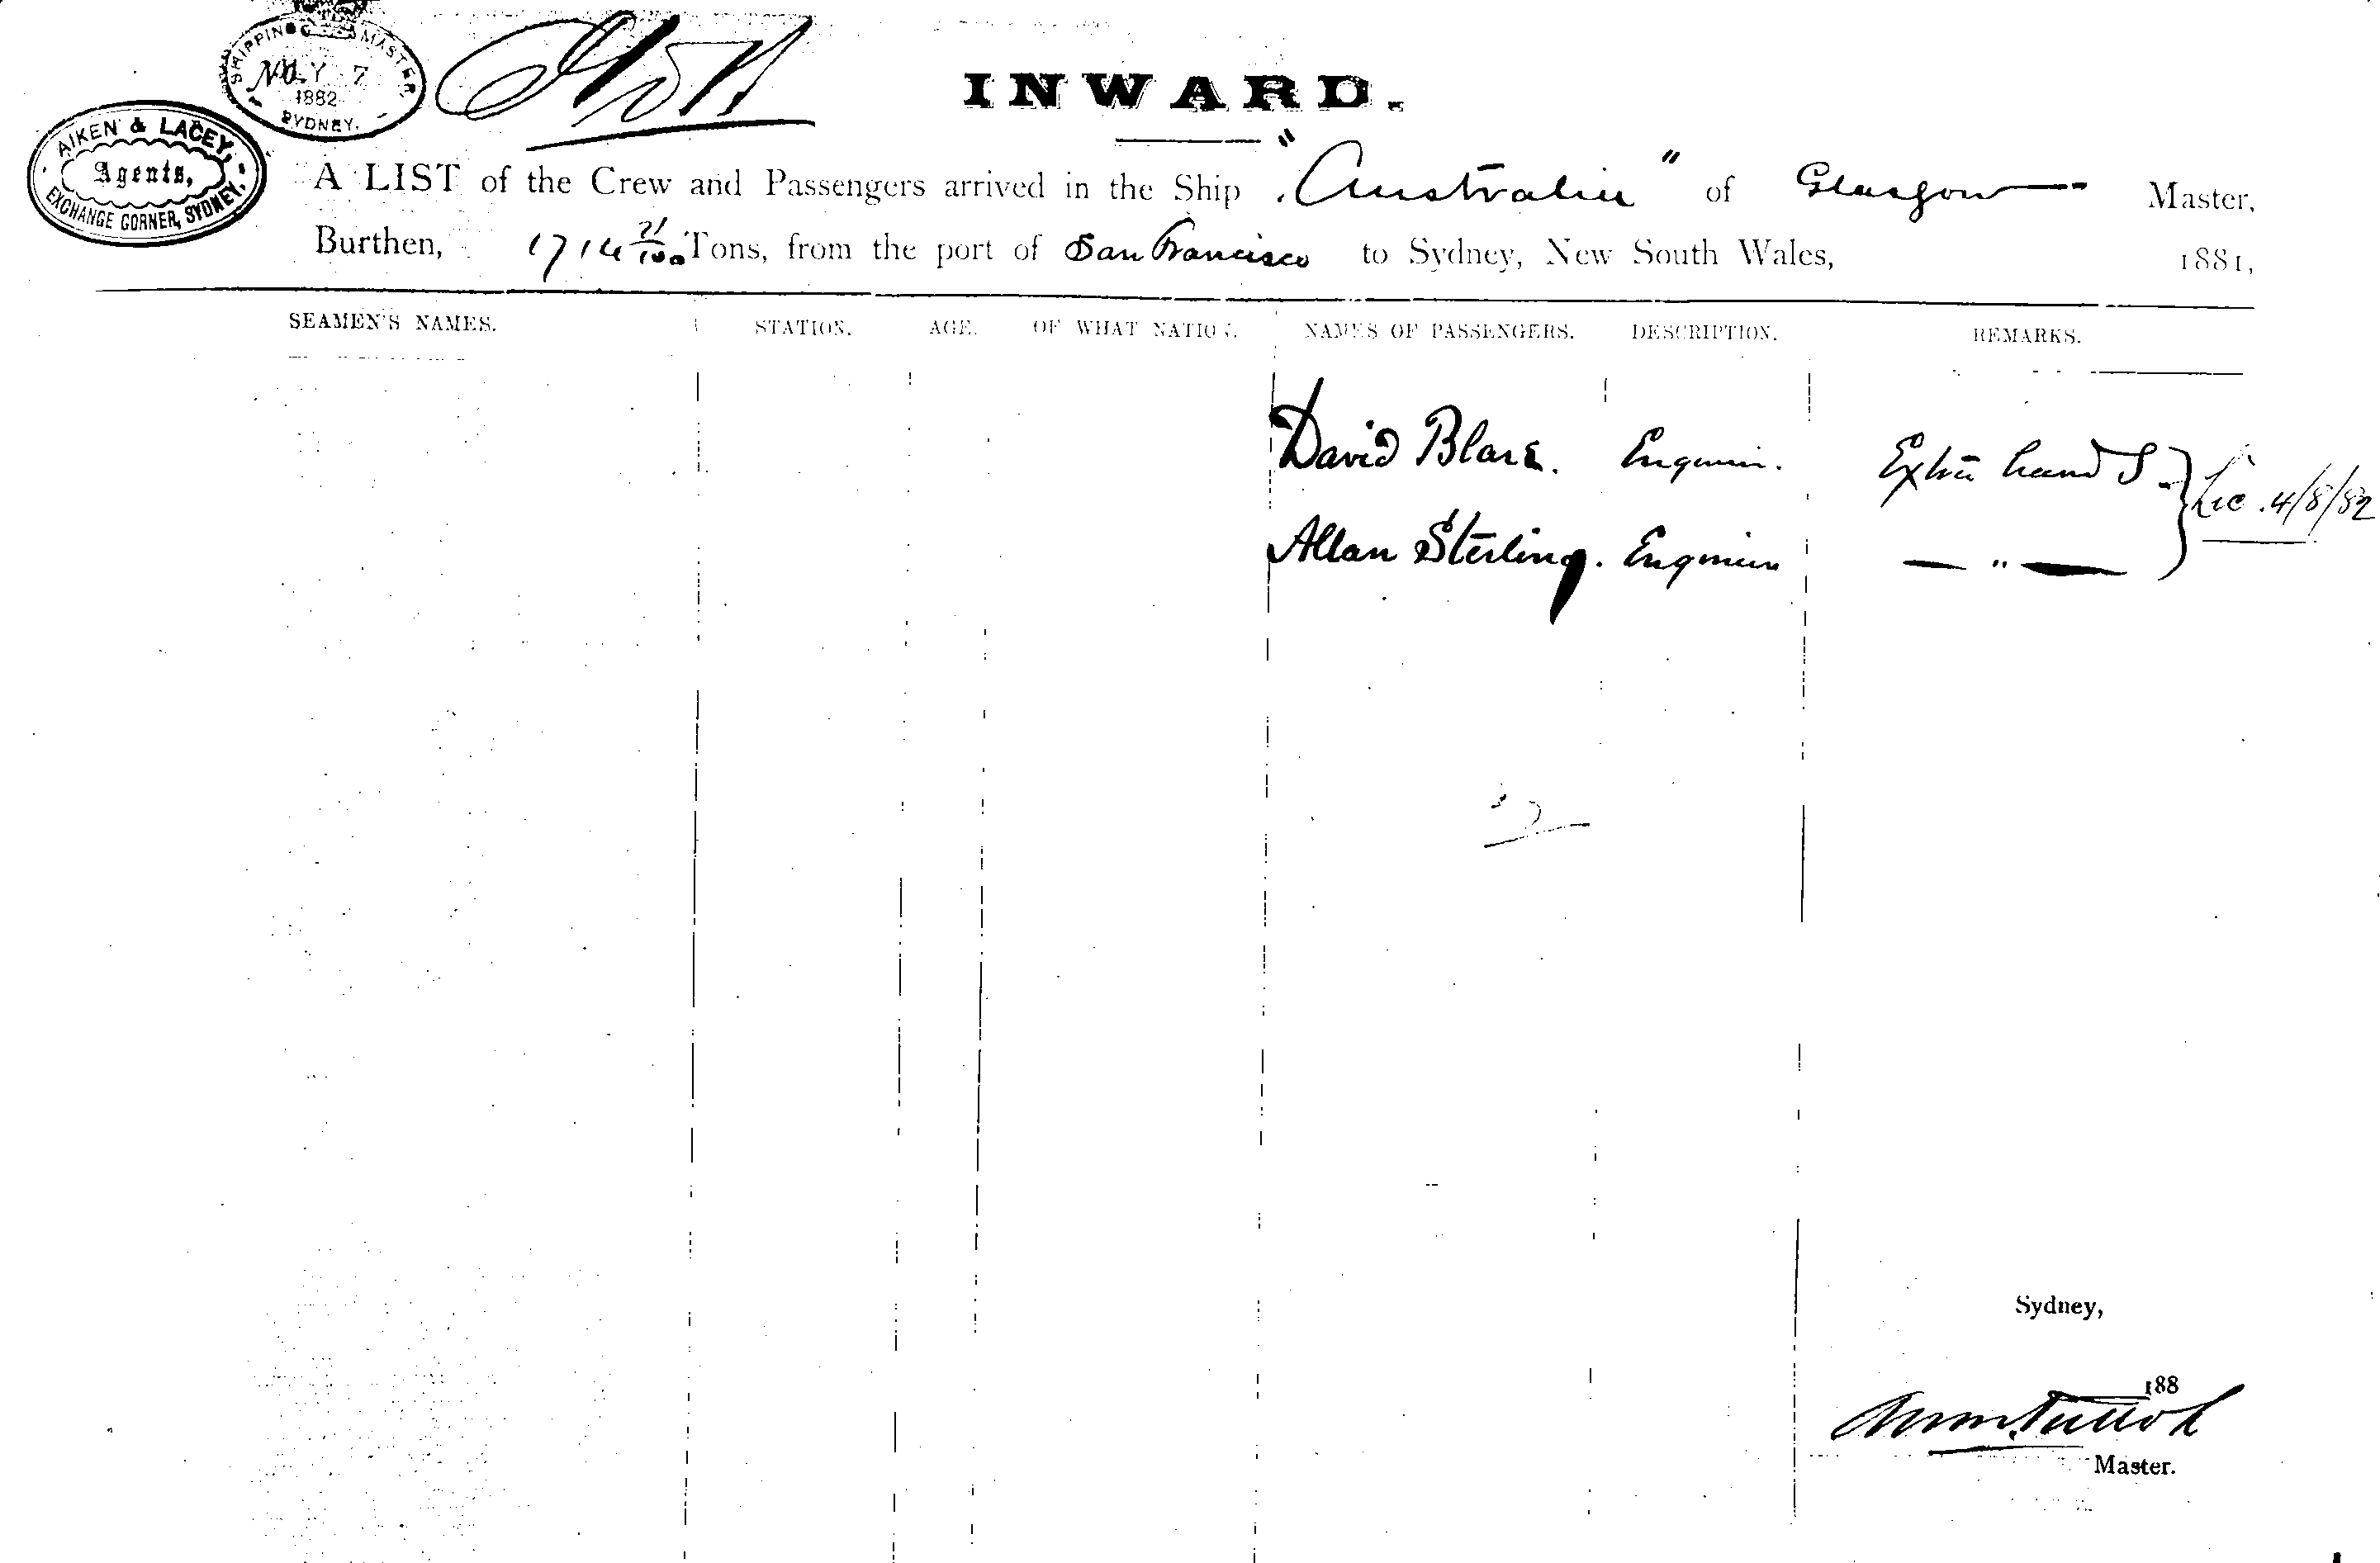 SHIPPING MASTER
7
1882
SYDNEY.
AIKEN & LACEY,
Agents,
EXCHANGE CORNER, SYDNEY.
INWARD.
A LIST of the Crew and Passengers arrived in the Ship "Australia" of Glasgow Master,
Burthen, 1714 21/100 Tons, from the port of San Francisco to Sydney, New South Wales, 1881,
SEAMEN'S NAMES. STATION. AGE. OF WHAT NATION. NAMES OF PASSENGERS. DESCRIPTION. REMARKS.
David Engineer. Extra hands Lic. 4/8/82
Allan Sterling. Engineer — " —
Sydney,
188
Master.